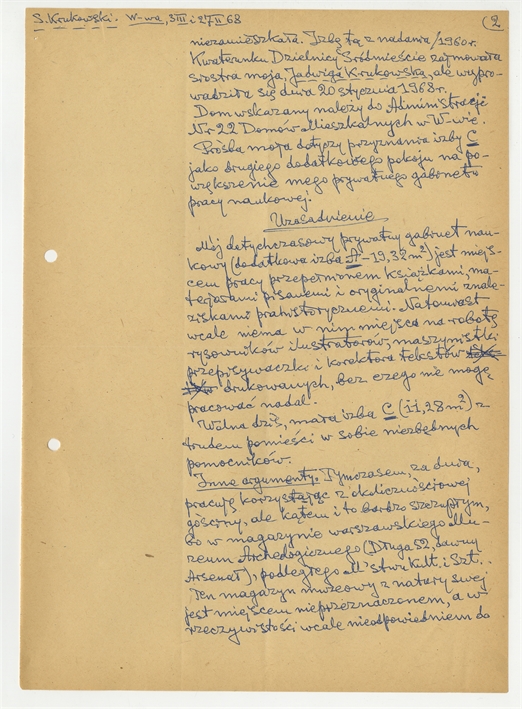 S. Krukowski. W-wa, 3 III i 27 II 68
(2
niezamieszkała. Izbę tą z nadania /1960 r.
Kwaterunku Dzielnicy Śródmieście zajmowała
siostra moja, Jadwiga Krukowska, ale wypro-
wadziła się dnia 20 stycznia 1968 r.
Dom wskazany należy do Administracji
Nr 22 Domów Mieszkalnych w W-wie.
Prośba moja dotyczy przyznania izby C
jako drugiego dodatkowego pokoju na po-
większenie mego prywatnego gabinetu
pracy naukowej.
Uzasadnienie
Mój dotychczasowy prywatny gabinet nau-
kowy (dodatkowa izba A - 19,32 m²) jest miejs-
cem pracy przepełnionem książkami, ma-
terjałami pisanemi i oryginalnemi znale-
ziskami prahistorycznemi. Natomiast
wcale niema w nim miejsca na robotę
rysowników ilustratorów, maszynistki
przepisywaczki i korektora tekstów
drukowanych, bez czego nie mogę
pracować nadal.
Wolna dziś, mała izba C (11,28 m²) z
trudem pomieści w sobie niezbędnych
pomocników.
Inne argumenty. Tymczasem, za dnia,
pracuję korzystając z okolicznościowej
gościny, ale kątem i to bardzo szczupłym,
bo w magazynie warszawskiego Mu-
zeum Archeologicznego (Długa 52, dawny
Arsenał), podległego M'stwu Kult. i Szt..
Ten magazyn muzeowy z natury swej
jest miejscem nieprzeznaczonem, a w
rzeczywistości wcale nieodpowiedniem do